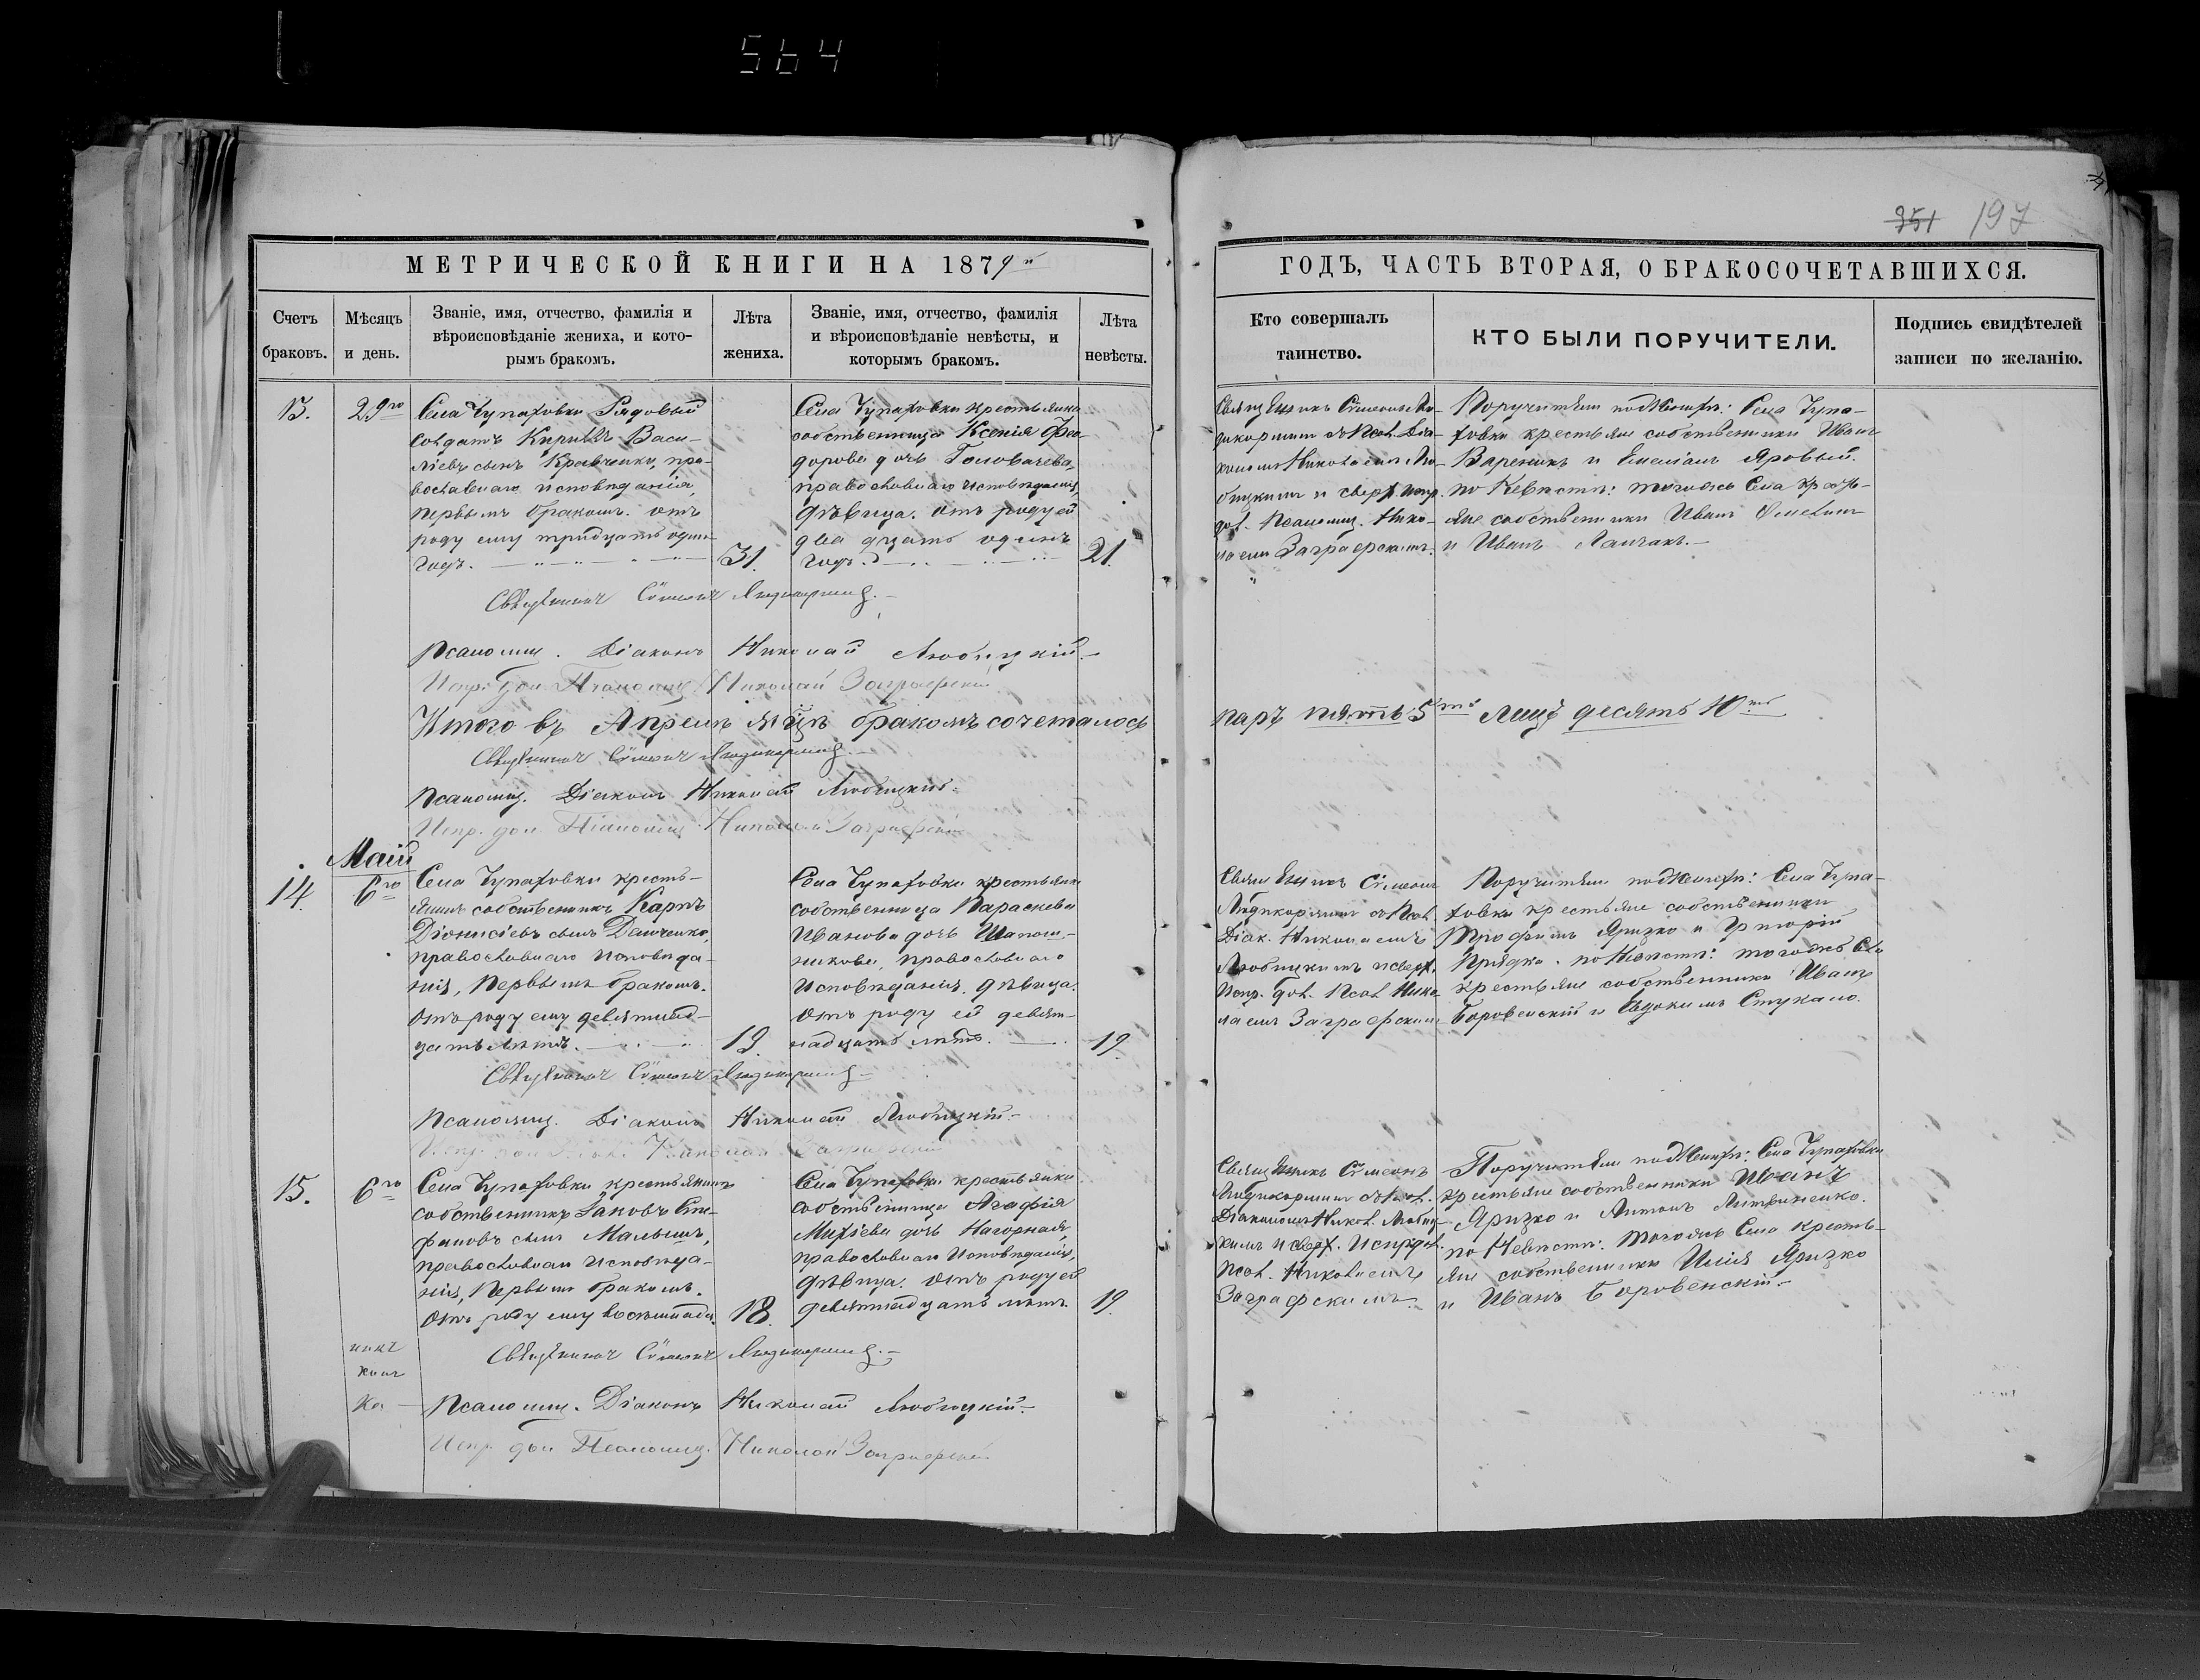 564
351 197
МЕТРИЧЕСКОЙ КНИГИ НА 1879й
ГОДЪ, ЧАСТЬ ВТОРАЯ, О БРАКОСОЧЕТАВШИХСЯ.
Счетъ браковъ.
Мѣсяцъ и день.
Званіе, имя, отчество, фамилія и
вѣроисповѣданіе жениха, и кото-
рымъ бракомъ.
Лѣта жениха.
Званіе, имя, отчество, фамилія
и вѣроисповѣданіе невѣсты, и
которымъ бракомъ.
Лѣта невѣсты.
Кто совершалъ
таинство.
КТО БЫЛИ ПОРУЧИТЕЛИ.
Подпись свидѣтелей
записи по желанію.
13.
29го
Села Чупаховки Рядовый
солдатъ Кириллъ Васи-
ліевъ сынъ Кравченко, пра-
вославнаго исповѣданія,
первымъ бракомъ. отъ
роду ему тридцать одинъ
годъ.
31.
Села Чупаховки крестьянка
собственница Ксенія Фео-
дорова дочь Головачева,
православнаго исповѣданія,
дѣвица. отъ роду ей
двадцать одинъ
годъ.
21.
Священникъ Сѵмеонъ Ли-
дикормин съ Псал. Діа-
кономъ Николаемъ Лю-
бицкимъ и сверх. испр.
дол. Псаломщ. Нико-
лаемъ Заграфскимъ.
Поручители по Женихѣ: Села Чупа-
ховки крестьяне собственники Иванъ
Вареникъ и Емеліанъ Яровый.
по Невѣстѣ: тогожъ Села кресть-
яне собственники Иванъ Омелин
и Иванъ Лапчакъ.
Священникъ Сѵмеонъ
Псаломщ. Діаконъ Николай Любицкій.
Испр. дол. Псаломщ. Николай Заграфскій
Итого въ Апрелѣ мцѣ бракомъ сочеталось паръ пять 5ть лицъ десять 10ть
Священникъ Сѵмеонъ
Псаломщ. Діаконъ Николай Любицкій.
Испр. дол. Псаломщ. Николай Заграфскій
Маій
14.
6го
Села Чупаховки кресть-
янинъ собственникъ Карпъ
Діонисіевъ сынъ Данченко,
православнаго исповѣда-
нія, первымъ бракомъ.
отъ роду ему девятнад-
цать лѣтъ.
19.
Села Чупаховки крестьянка
собственница Параскева
Иванова дочь Шапош-
никова, православнаго
исповѣданія. дѣвица.
отъ роду ей девят-
надцать лѣтъ.
19.
Священникъ Сѵмеонъ
Лидикормин съ Псал.
Діак. Николаемъ
Любицкимъ и сверх.
Испр. дол. Псал. Нико-
лаемъ Заграфским
Поручители по Женихѣ: Села Чупа-
ховки крестьяне собственники
Трофимъ Яризко и Григорій
Прядка. по Невѣстѣ: тогожъ Села
крестьяне собственники Иванъ
Боровенскій и Евдокимъ Стукало.
Священникъ Сѵмеонъ
Псаломщ. Діаконъ Николай Любицкій.
15.
6го
Села Чупаховки крестьянинъ
собственникъ Іаковъ Сте-
фановъ сынъ Малышъ,
православнаго исповѣда-
нія, первымъ бракомъ.
отъ роду ему восемнадц.
18.
Села Чупаховки крестьянка
собственница Агафія
Михѣева дочь Нагорная,
православнаго исповѣданія,
дѣвица. отъ роду ей
девятнадцать лѣтъ.
19.
Священникъ Сѵмеонъ
Лидикормин съ Псал.
Діакономъ Никол. Любиц-
кимъ и сверх. Испр. дол.
Псал. Николаемъ
Заграфскимъ.
Поручители по Женихѣ: Села Чупаховки
крестьяне собственники Иванъ
Яризко и Антонъ Литвиненко.
по Невѣстѣ: тогожъ Села кресть-
яне собственники Илія Яризко
и Иванъ Боровенскій.
Священникъ Сѵмеонъ
Псаломщ. Діаконъ Николай Любицкій.
Испр. дол. Псаломщ. Николай Заграфскій